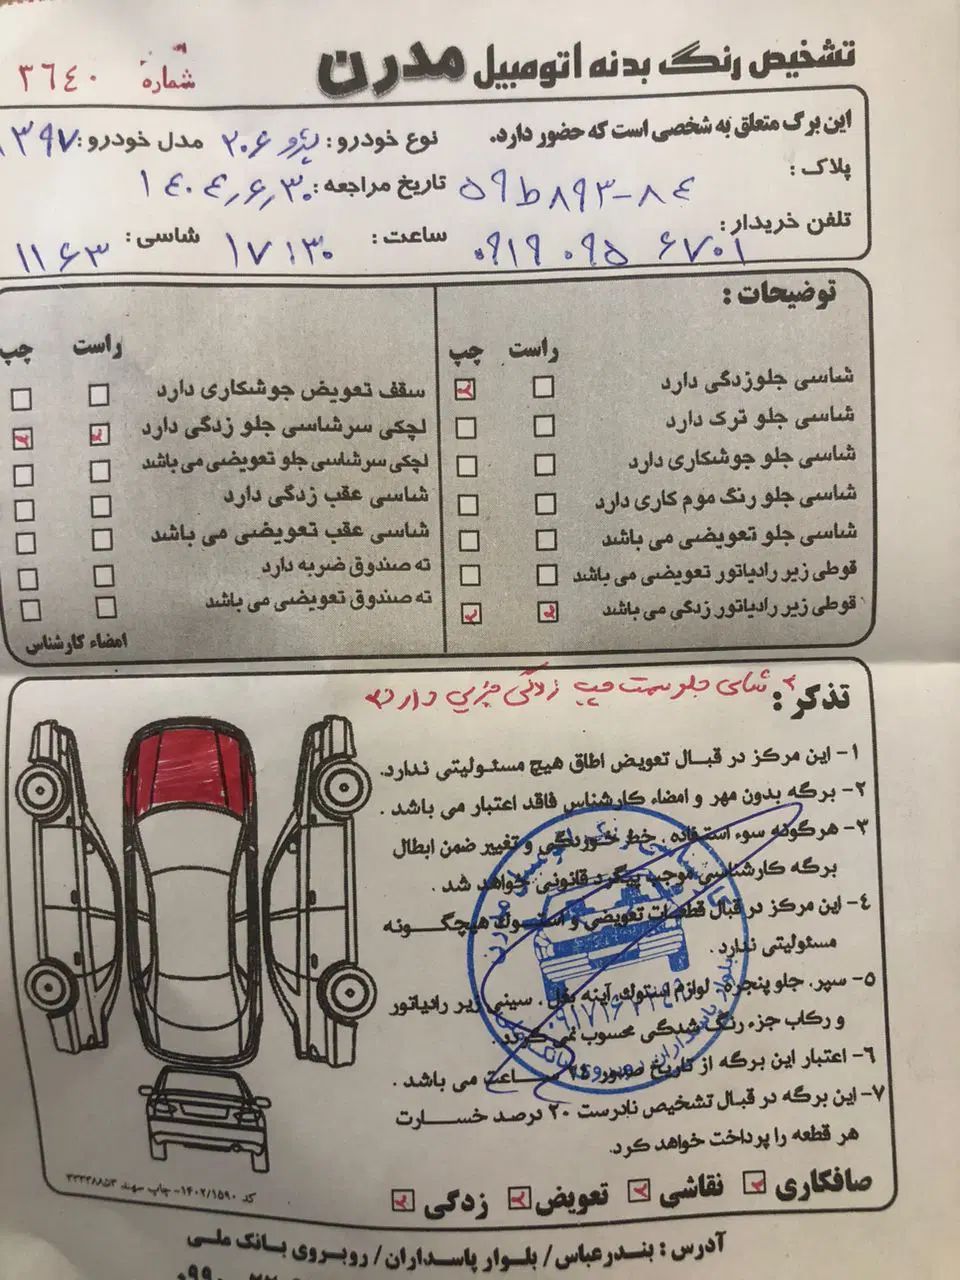 تشخیص رنگ بدنه اتومبیل مدرن
شماره ۳٦٤۰
این برگ متعلق به شخصی است که حضور دارد.
نوع خودرو: پژو ۲۰۶ مدل خودرو: ۱۳۹۷
پلاک: ۵۹ط۸۹۳-۸٤ تاریخ مراجعه: ۱٤۰٤٫۶٫۳۰
تلفن خریدار: ۰۹۱۹ ۰۹۵ ۶۷۰۱ ساعت: ۱۷:۳۰ شاسی: ۱۱۶۳
توضیحات:
راست چپ
شاسی جلوزدگی دارد
شاسی جلو ترک دارد
شاسی جلو جوشکاری دارد
شاسی جلو رنگ موم کاری دارد
شاسی جلو تعویضی می باشد
قوطی زیر رادیاتور تعویضی می باشد
قوطی زیر رادیاتور زدگی می باشد
راست چپ
سقف تعویض جوشکاری دارد
لچکی سرشاسی جلو زدگی دارد
لچکی سرشاسی جلو تعویضی می باشد
شاسی عقب زدگی دارد
شاسی عقب تعویضی می باشد
ته صندوق ضربه دارد
ته صندوق تعویضی می باشد
امضاء کارشناس
تذکر:
شاسی جلو سمت چپ زدگی جزیی دارد
۱- این مرکز در قبال تعویض اطاق هیچ مسئولیتی ندارد.
۲- برگه بدون مهر و امضاء کارشناس فاقد اعتبار می باشد.
۳- هرگونه سوء استفاده. خط خوردگی و تغییر ضمن ابطال
برگه کارشناسی موجب پیگرد قانونی خواهد شد.
٤- این مرکز در قبال قطعات تعویضی و استوک هیچگونه
مسئولیتی ندارد.
۵- سپر. جلو پنجره. لوازم استوک، آینه بغل. سینی زیر رادیاتور
و رکاب جزء رنگ شدگی محسوب نمی گردد.
۶- اعتبار این برگه از تاریخ صدور ساعت می باشد.
۷- این برگه در قبال تشخیص نادرست ۲۰ درصد خسارت
هر قطعه را پرداخت خواهد کرد.
صافکاری نقاشی تعویض زدگی
کد ۱۴۰۲/۱۵۹۰- چاپ سهند ۳۳۳۳۸۸۵۳
آدرس: بندرعباس/ بلوار پاسداران/ روبروی بانک ملی